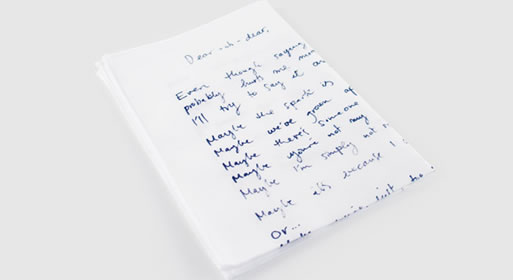 Dear-oh-dear,
Even though saying
probably hurts me more
I'll try to say it an
Maybe the spark is
Maybe we've grown ap
Maybe there's someone
Maybe you're not my
Maybe I'm simply not
Maybe it's because I
Or...
Maybe just too